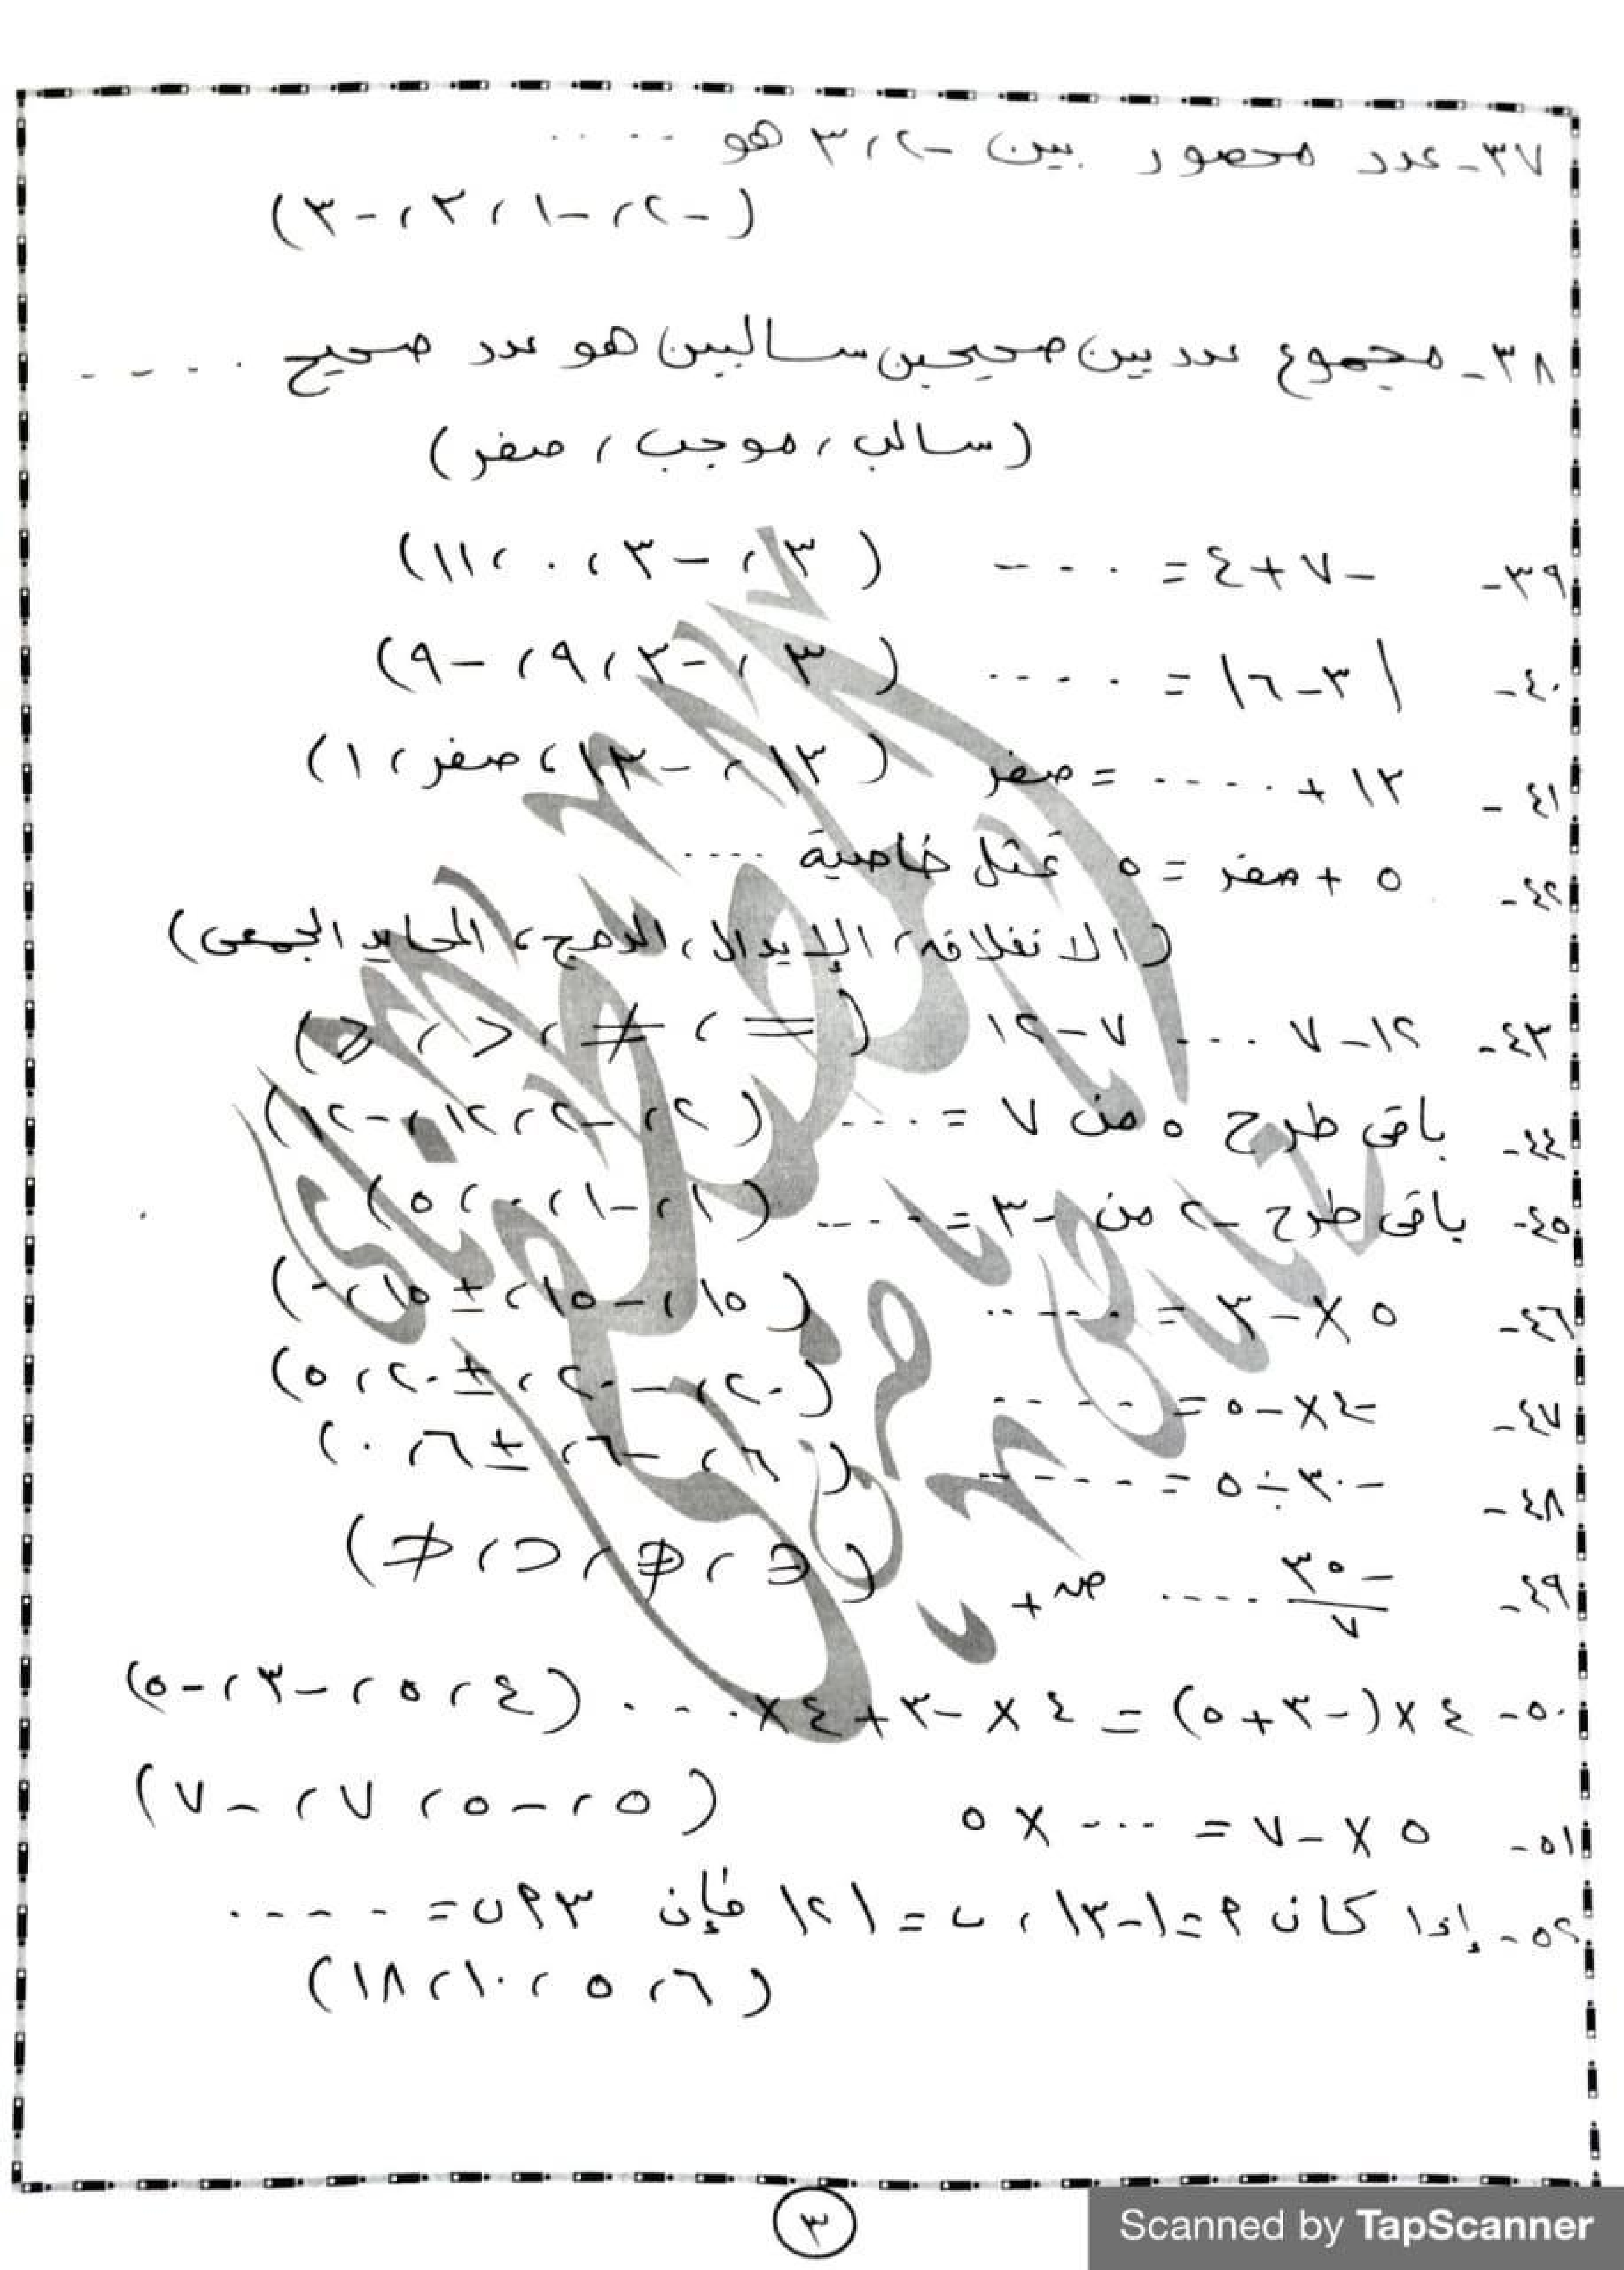 ٣٧- عدد محصور بين -٢، ٣ هو .....
(-٢، -١، ٣، -٣)
٣٨- مجموع عددين صحيحين سالبين هو عدد صحيح .....
(سالب، موجب، صفر)
٣٩- -٧+٤ = .... (٣، -٣، ٠، ١١)
٤٠- |٣-٦| = .... (٣، -٣، ٩، -٩)
٤١- ١٣ + .... = صفر (١٣، -١٣، صفر، ١)
٤٢- ٥ + صفر = ٥ تمثل خاصية ....
(الانغلاق، الإبدال، الدمج، المحايد الجمعى)
٤٣- ١٢-٧ ... ٧-١٢ (=، ≠، >، ⩾)
٤٤- باقى طرح ٥ من ٧ = .... (٢، -٢، ١٢، -١٢)
٤٥- باقى طرح -٢ من -٣ = .... (١، -١، ٠، ٥)
٤٦- ٥ × -٣ = ..... (١٥، -١٥، ± ١٥، ٠)
٤٧- -٤ × -٥ = ..... (٢٠، -٢٠، ± ٢٠، ٥)
٤٨- -٣٠ ÷ ٥ = ..... (٦، -٦، ± ٦، ٠)
٤٩- -٣٥/٧ .... صـ+ (∈، ∉، ⊂، ⊄)
٥٠- ٤ × (-٣+٥) = ٤ × -٣ + ٤ × .... (٤، ٥، -٣، -٥)
٥١- ٥ × -٧ = ... × ٥ (٥، -٥، ٧، -٧)
٥٢- إذا كان م = |-٣|، ب = |٢| فإن ٣م ب = .....
(٦، ٥، ١٠، ١٨)
٣
Scanned by TapScanner